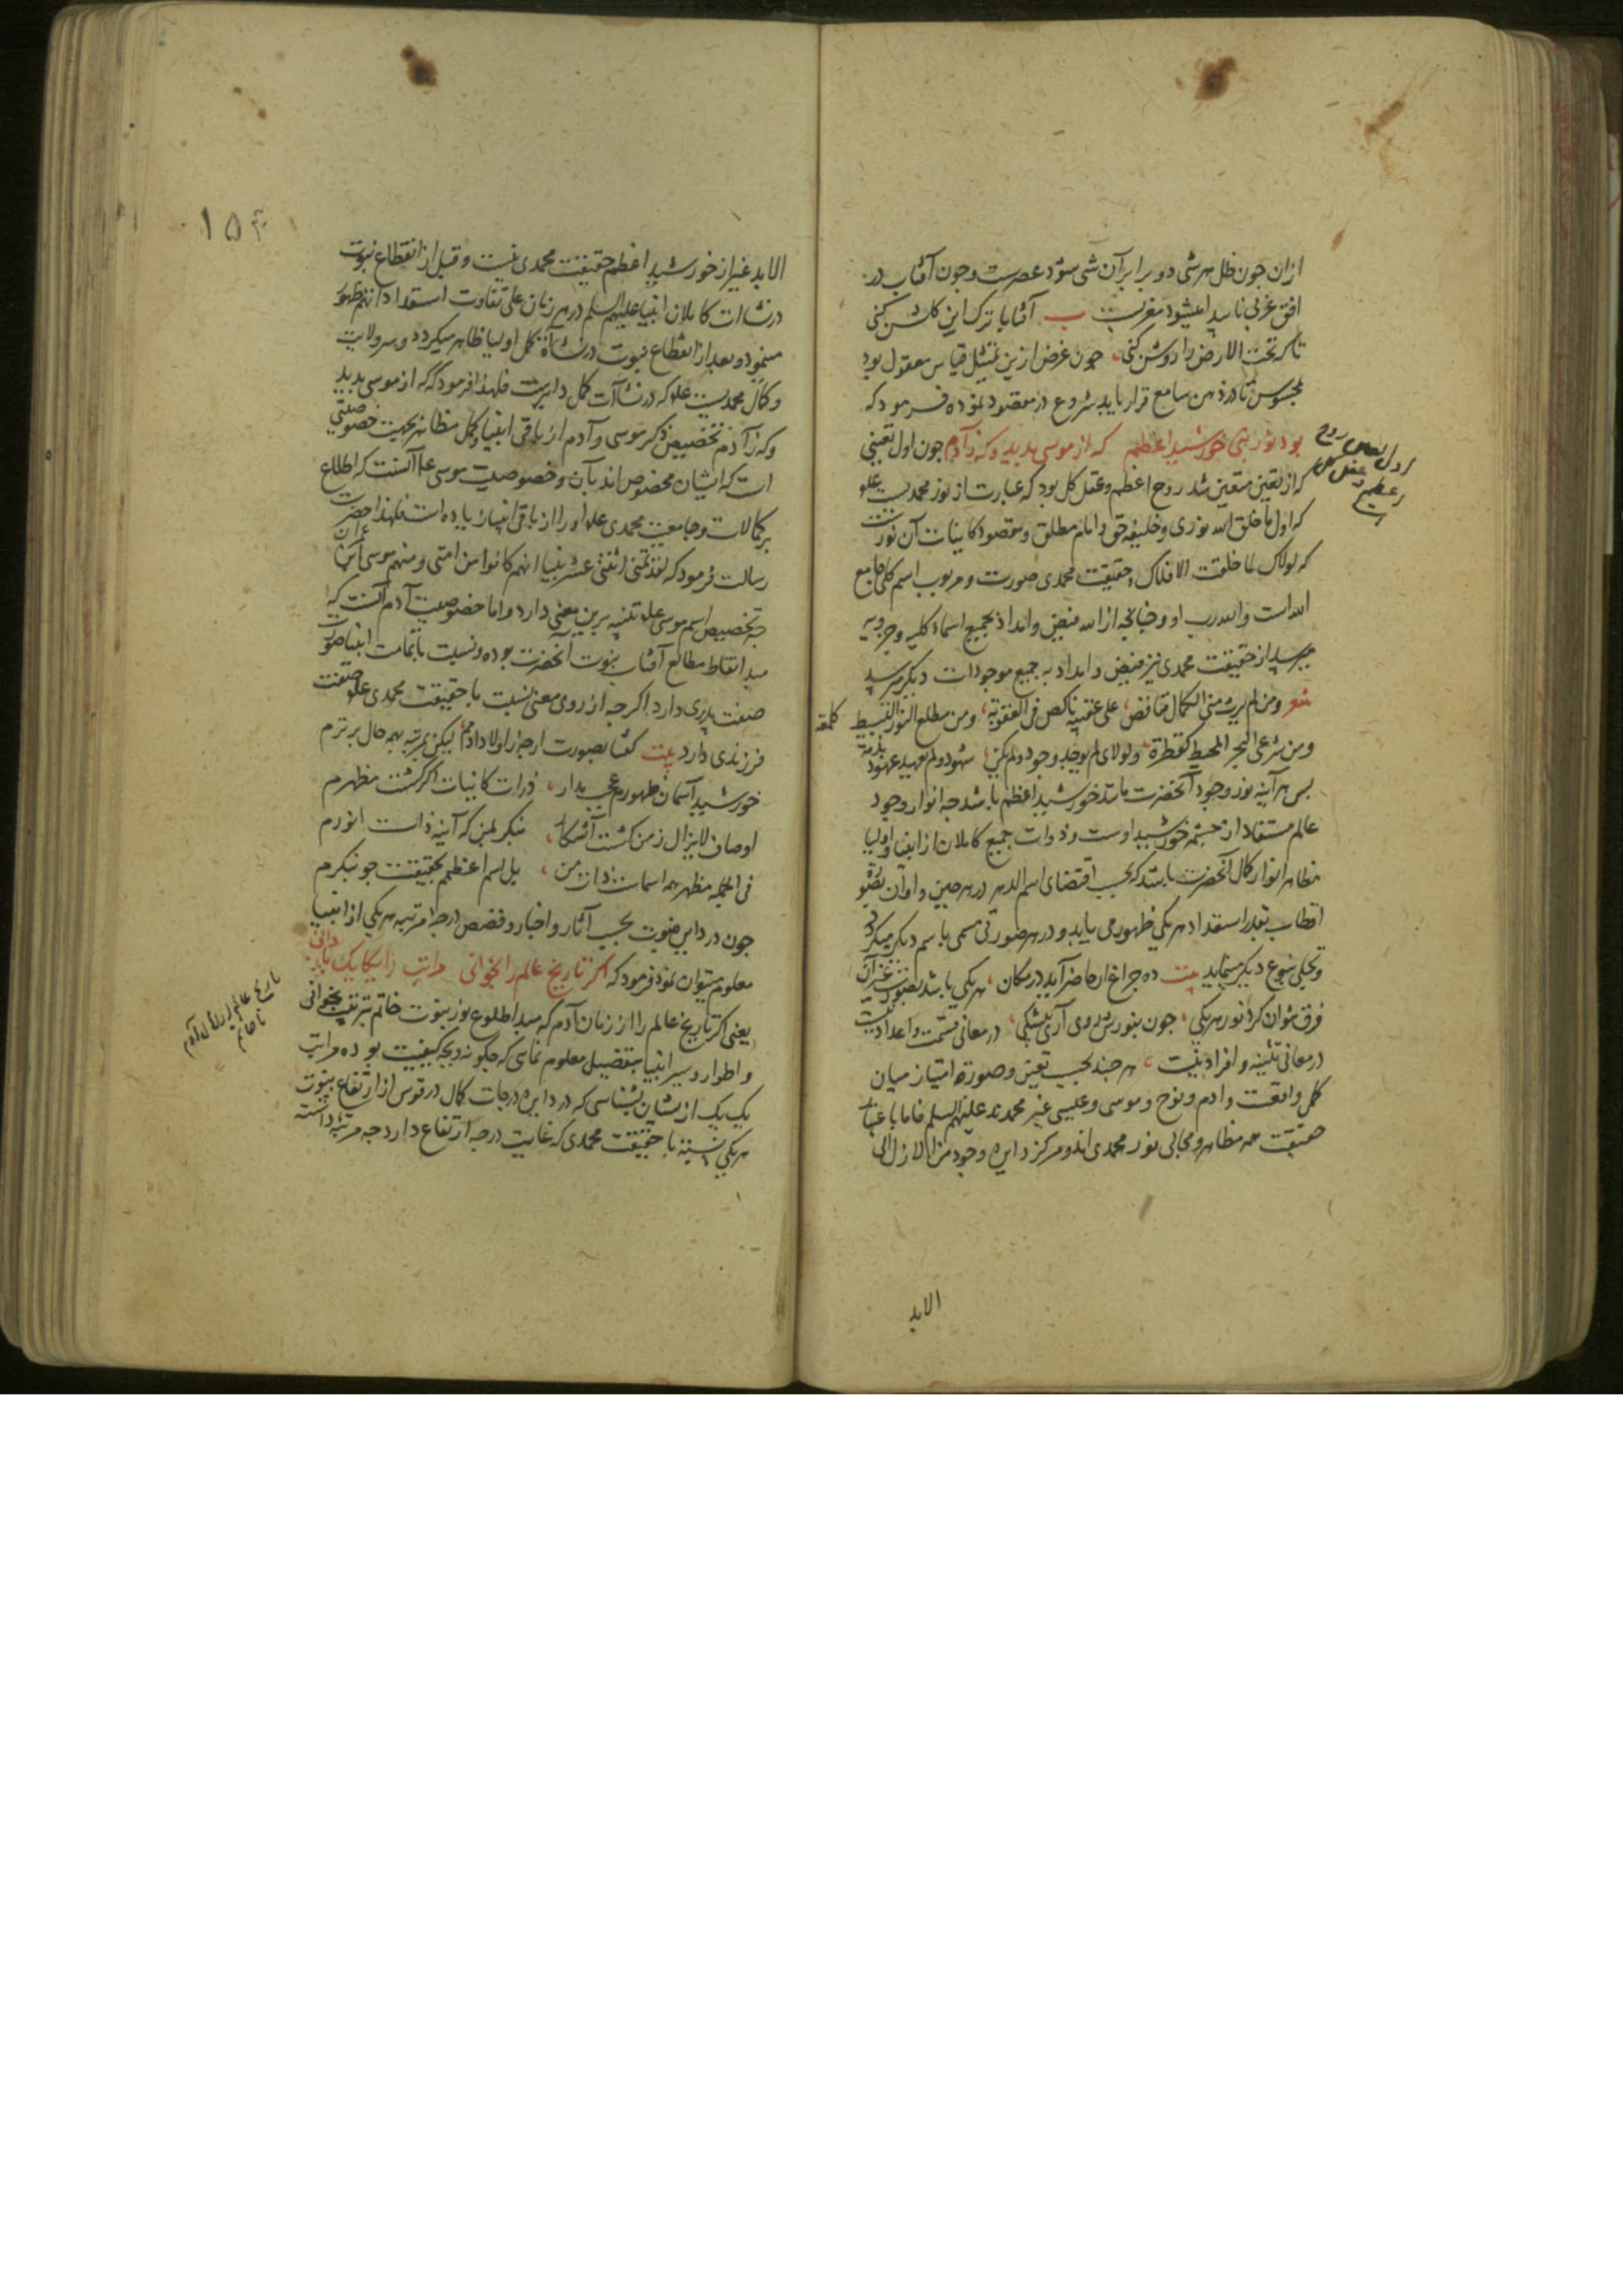 ازان چون ظل هر شی دو برابر آن شی شود عصرست و چون آفتاب در
افق غربی ناپیدا میشود مغربست بیت آفتابا ترک این گلشن کنی
تا که تحت الارض را روشن کنی چون غرض ازین تمثیل قیاس معقول بود
بمحسوس تا در ذهن سامع قرار یابد شروع در مقصود نموده فرمود که
بود نور نبی خورشید اعظم که از موسی بدید و که ز آدم چون اول تعینی
که از تعین متعین شد روح اعظم و عقل کل بود که عبارت از نور محمدیست علم
که اول ما خلق الله نوری و خلیفه حق و امام مطلق و مقصود کاینات آن نورست
که لولاک لما خلقت الافلاک و حقیقت محمدی صورت و مربوب اسم کلی جامع
الله است و الله رب او و چنانچه از الله فیض و امداد بجمیع اسماء کلیه و جزویه
میرسد از حقیقت محمدی نیز فیض و امداد به جمیع موجودات دیگر میرسد
شعر ومن لم یرث منی الکمال فناقص علی عقبیه ناکص فی العقوبة ومن مطلع النور البسیط کلمعة
ومن شرعی البحر المحیط کقطرة ولولای لم یوجد وجود ولم یکن شهود ولم تعهد عهود بذمة
پس هر آینه نور وجود آنحضرت مانند خورشید اعظم باشد چه انوار وجود
عالم مستفاد از چشمه خورشید اوست و ذوات جمیع کاملان از انبیا و اولیا
مظاهر انوار کمال آنحضرت باشند که بحسب اقتضای اسم الدهر در هر حین و اوان بصورة
اقطاب بقدر استعداد هر یکی ظهور می یابد و در هر صورتی مسمی باسم دیگر میگردد
و تجلی بنوع دیگر مینماید بیت ده چراغ ار حاضر آید در مکان هر یکی باشد بصورت غیر آن
فرق نتوان کرد نور هر یکی چون بنورش روی آری بیشکی در معانی قسمت و اعداد نیست
در معانی تثنیه و افراد نیست هر چند بحسب تعین و صورة امتیاز میان
کمل واقعست و آدم و نوح و موسی و عیسی غیر محمدند علیهم السلم فاما باعتبار
حقیقت همه مظاهر و مجالی نور محمدی اند و مرکز دایره وجود من الازل الی
الابد
اول تعین روح
اعظم عقل کل
است
۱۵۴
الابد غیر از خورشید اعظم حقیقت محمدی نیست و قبل از انقطاع نبوت
در نشاات کاملان انبیا علیهم السلم در هر زمان علی تفاوت استعداداتهم ظهور
مینمود و بعد از انقطاع نبوت در نشأة کمل اولیا ظاهر میگردد و سر ولایت
و کمال محمدیست علم که در نشاآت کمل دایرست فلهذا فرمود که که از موسی بدید
و که ز آدم تخصیص ذکر موسی و آدم از باقی انبیا و کمل مظاهر بجهت خصوصیتی
است که ایشان مخصوص اند بآن و خصوصیت موسی عم آنست که اطلاع
بر کمالات و جامعیت محمدی علم او را از باقی انبیا زیاده است فلهذا حضرت
رسالت فرمود که لقد تمنی اثنی عشر نبیا انهم کانوا من امتی ومنهم موسی بن عمران
چه تخصیص اسم موسی علم تنبیه برین معنی دارد و اما خصوصیت آدم آنست که
مبدا نقاط مطالع آفتاب نبوت آنحضرت بوده و نسبت با تمامت انبیا صورت
صفت پدری دارد اگرچه از روی معنی نسبت با حقیقت محمدی علم صفت
فرزندی دارد بیت گفتا بصورت ارچه ز اولاد آدمم لیکن بمرتبه بهمه حال برترم
خورشید آسمان ظهورم عجب مدار ذرات کاینات اگر گشت مظهرم
اوصاف لایزال ز من گشت آشکار بنگر بمن که آینه ذات انورم
فی الجمله مظهر همه اسماست ذات من بل اسم اعظمم بحقیقت چو بنگرم
چون در دایره نبوت بحسب آثار و اخبار و قصص درجه و مرتبه هر یکی از انبیا
معلوم میتوان نمود فرمود که اگر تاریخ عالم را بخوانی مراتب را یکایک باز دانی
یعنی اگر تاریخ عالم را از زمان آدم که مبدا طلوع نور نبوت خاتم بترتیب بخوانی
و اطوار و سیر انبیا بتفصیل معلوم نمایی که چگونه و بچه کیفیت بوده مراتب
یک یک ازیشان بشناسی که در دایره درجات کمال در قوس از ارتفاع نبوت
هر یکی نسبت با حقیقت محمدی که غایت درجه ارتفاع دارد چه مرتبه داشته
تاریخ عالم از زمان آدم
تا خاتم